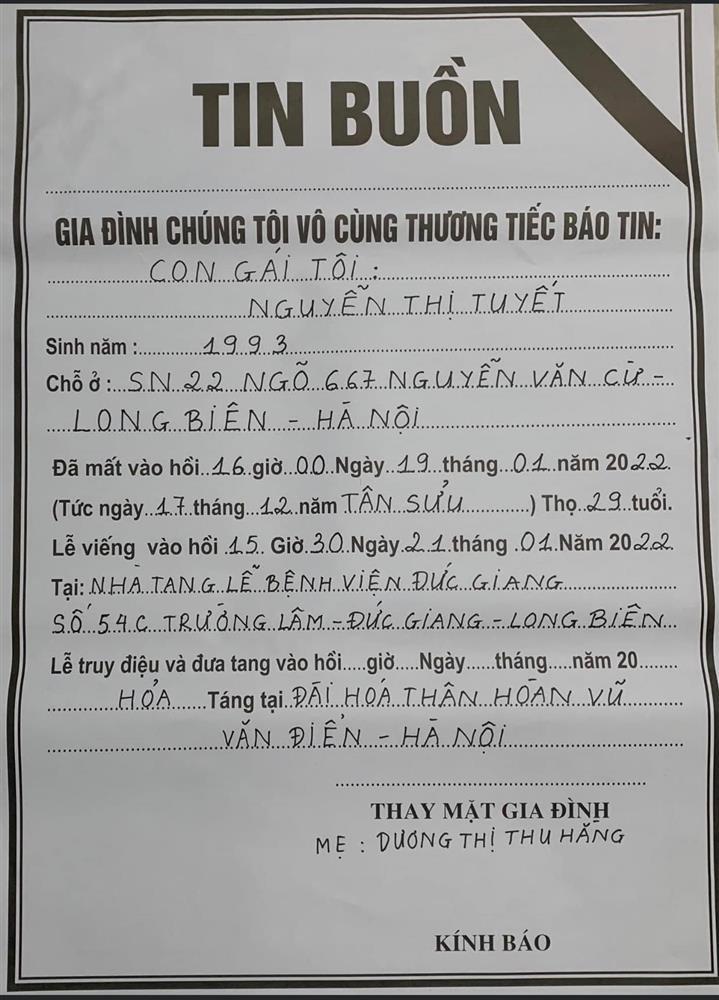 TIN BUỒN
GIA ĐÌNH CHÚNG TÔI VÔ CÙNG THƯƠNG TIẾC BÁO TIN:
CON GÁI TÔI:
NGUYỄN THỊ TUYẾT
Sinh năm : 1993
Chỗ ở : SN 22 NGÕ 667 NGUYỄN VĂN CỪ -
LONG BIÊN - HÀ NỘI
Đã mất vào hồi 16 giờ 00 Ngày 19 tháng 01 năm 2022.
(Tức ngày 17 tháng 12 năm TÂN SỬU ) Thọ 29 tuổi.
Lễ viếng vào hồi 15 Giờ 30 Ngày 21 tháng 01 Năm 2022
Tại: NHÀ TANG LỄ BỆNH VIỆN ĐỨC GIANG
SỐ 54C TRƯỜNG LÂM - ĐỨC GIANG - LONG BIÊN
Lễ truy điệu và đưa tang vào hồi.....giờ.....Ngày......tháng.....năm 20........
HỎA Táng tại ĐÀI HOÁ THÂN HOÀN VŨ
VĂN ĐIỂN - HÀ NỘI
THAY MẶT GIA ĐÌNH
MẸ : DƯƠNG THỊ THU HẰNG
KÍNH BÁO